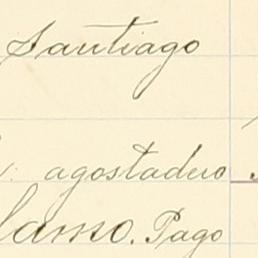 Santiago
agostadero
lamso. Pago